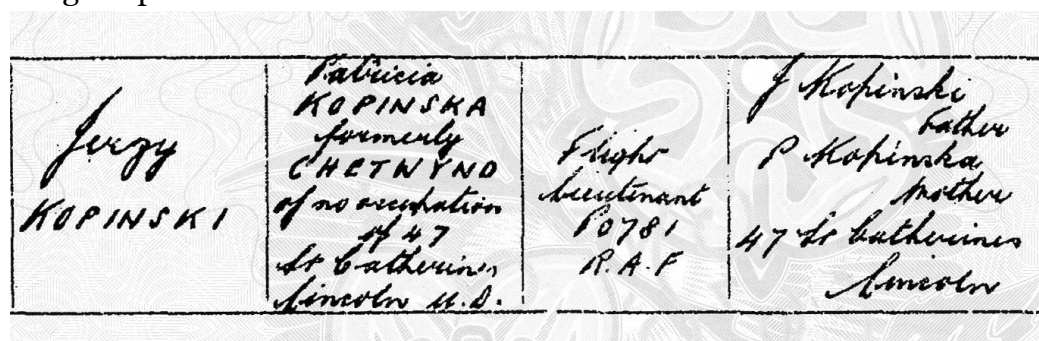 Jerzy
KOPINSKI
Patricia
KOPINSKA
formerly
CHETWYND
of no occupation
of 47
St Catherines
Lincoln U.D.
Flight
Lieutenant
P0781
R.A.F
J Kopinski
Father
P Kopinska
Mother
47 St Catherines
Lincoln